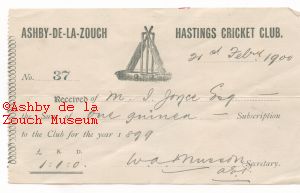 ASHBY-DE-LA-ZOUCH HASTINGS CRICKET CLUB.
21st Feby 1900
No. 37
Received of M. J. Joyce Esq
the Sum of One guinea - Subscription
to the Club for the year 1899
£ S. D.
1 : 1 : 0
W A Musson
Secretary.
©Ashby de la
Zouch Museum